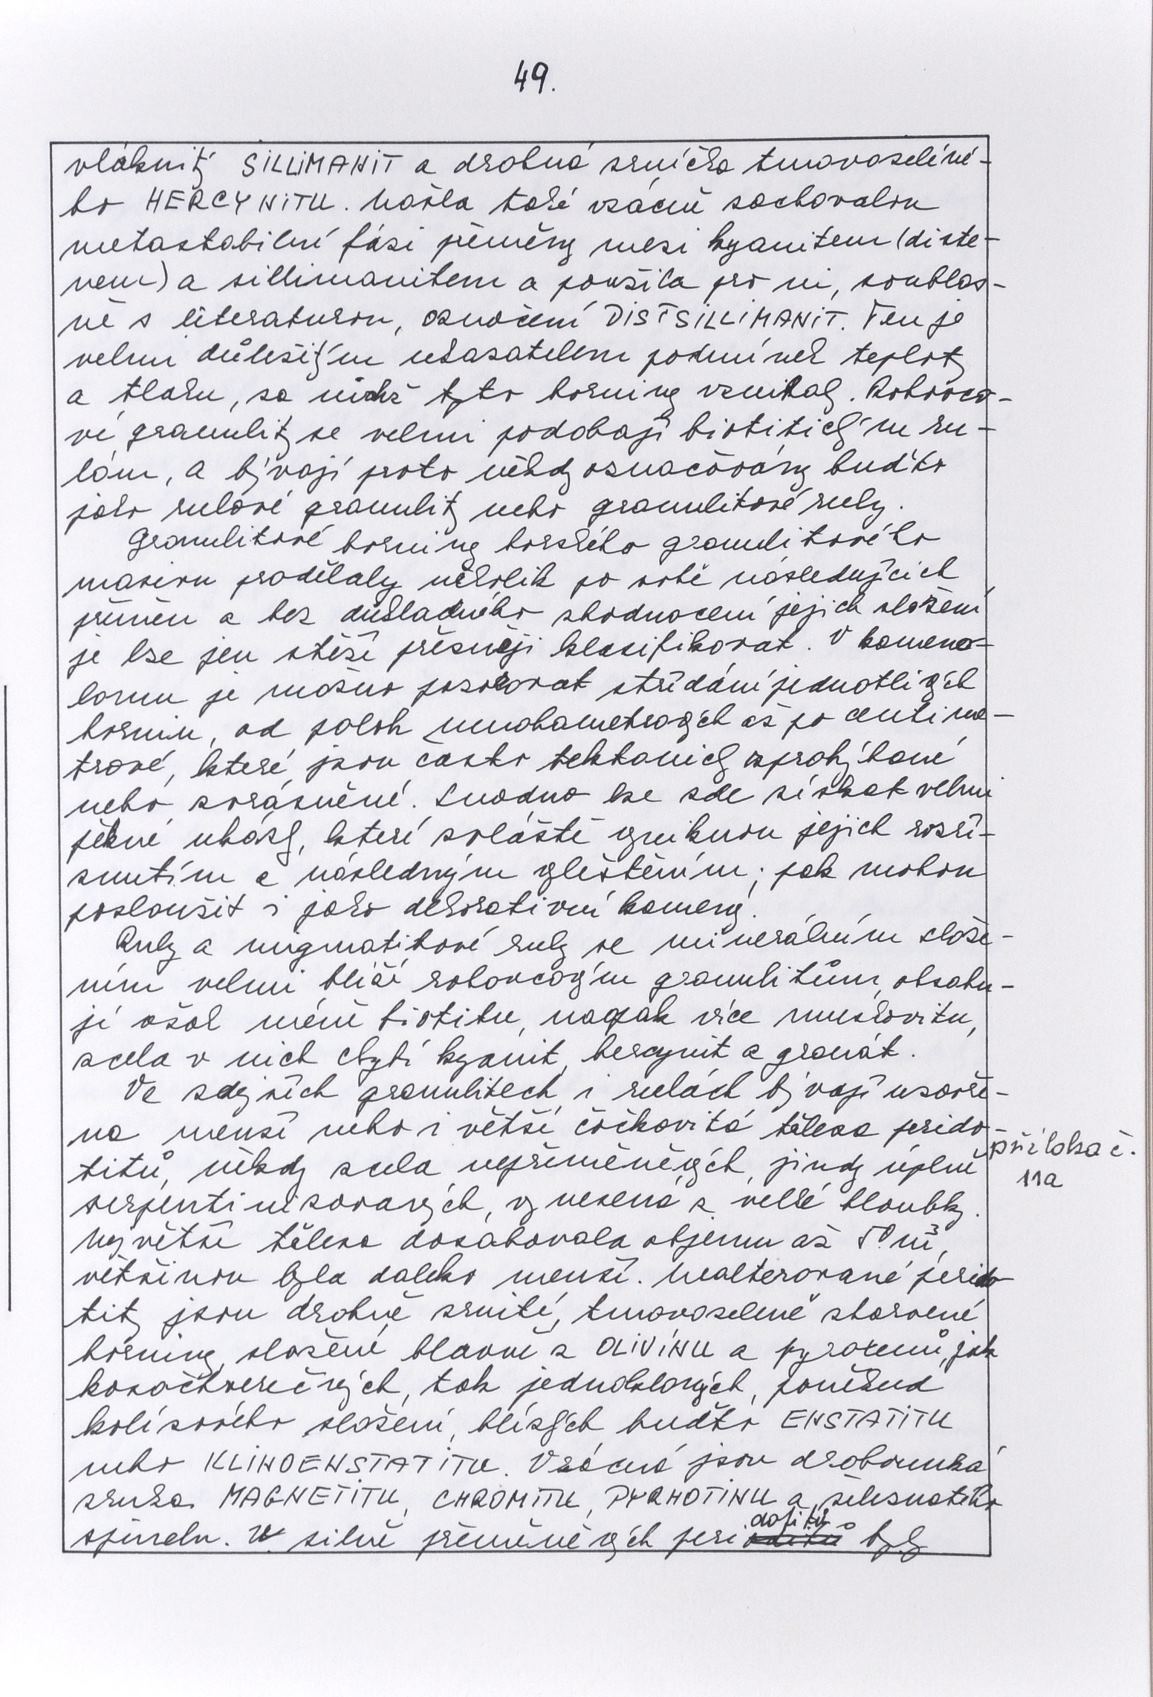 49.
vláknitý SILLIMANIT a drobná zrníčka tmavozelené-
ho HERCYNITU. Našla také vzácně zachovalou
metastabilní fázi přeměny mezi kyanitem (diste-
nem) a sillimanitem a použila pro ni, souhlas-
ně s literaturou, označení DISTSILLIMANIT. Ten je
velmi důležitým ukazatelem podmínek teploty
a tlaku, za nichž tyto horniny vznikaly. Rohovco-
vé granulity se velmi podobají biotitickým ru-
lám, a bývají proto někdy označovány buďto
jako rulové granulity nebo granulitové ruly.
Granulitové horniny horského granulitového
masivu prodělaly několik po sobě následujících
přeměn a bez důkladného zhodnocení jejich složení
je lze jen stěží přesněji klasifikovat. V kameno-
lomu je možno pozorovat střídání jednotlivých
hornin, od poloh mnohametrových až po centime-
trové, které jsou často tektonicky zprohýbané
nebo zvrásněné. Snadno lze zde získat velmi
pěkné ukázky, které zvláště vyniknou jejich rozří-
znutím a následným vyleštěním; pak mohou
posloužit i jako dekorativní kameny.
Ruly a migmatitové ruly se minerálním slože-
ním velmi blíží rohovcovým granulitům, obsahu-
jí však méně biotitu, naopak více muskovitu,
zcela v nich chybí kyanit, hercynit a granát.
Ve zdejších granulitech i rulách bývají uzavře-
na menší nebo i větší čočkovitá tělesa perido-
titů, někdy zcela nepřeměněných, jindy úplně
serpentinizovaných, vynesená z velké hloubky.
příloha č.
11a
Největší tělesa dosahovala objemu až m³,
většinou byla daleko menší. Nealterované perido-
tity jsou drobně zrnité, tmavozeleně zbarvené
horniny, složené hlavně z OLIVÍNU a pyroxenů, jak
kosočtverečných, tak jednoklonných, poněkud
kolísavého složení, blízkých buďto ENSTATITU
nebo KLINOENSTATITU. Vzácná jsou drobounká
zrnka MAGNETITU, CHROMITU, PYRHOTINU a železnatého
spinelu. V silně přeměněných peri byly